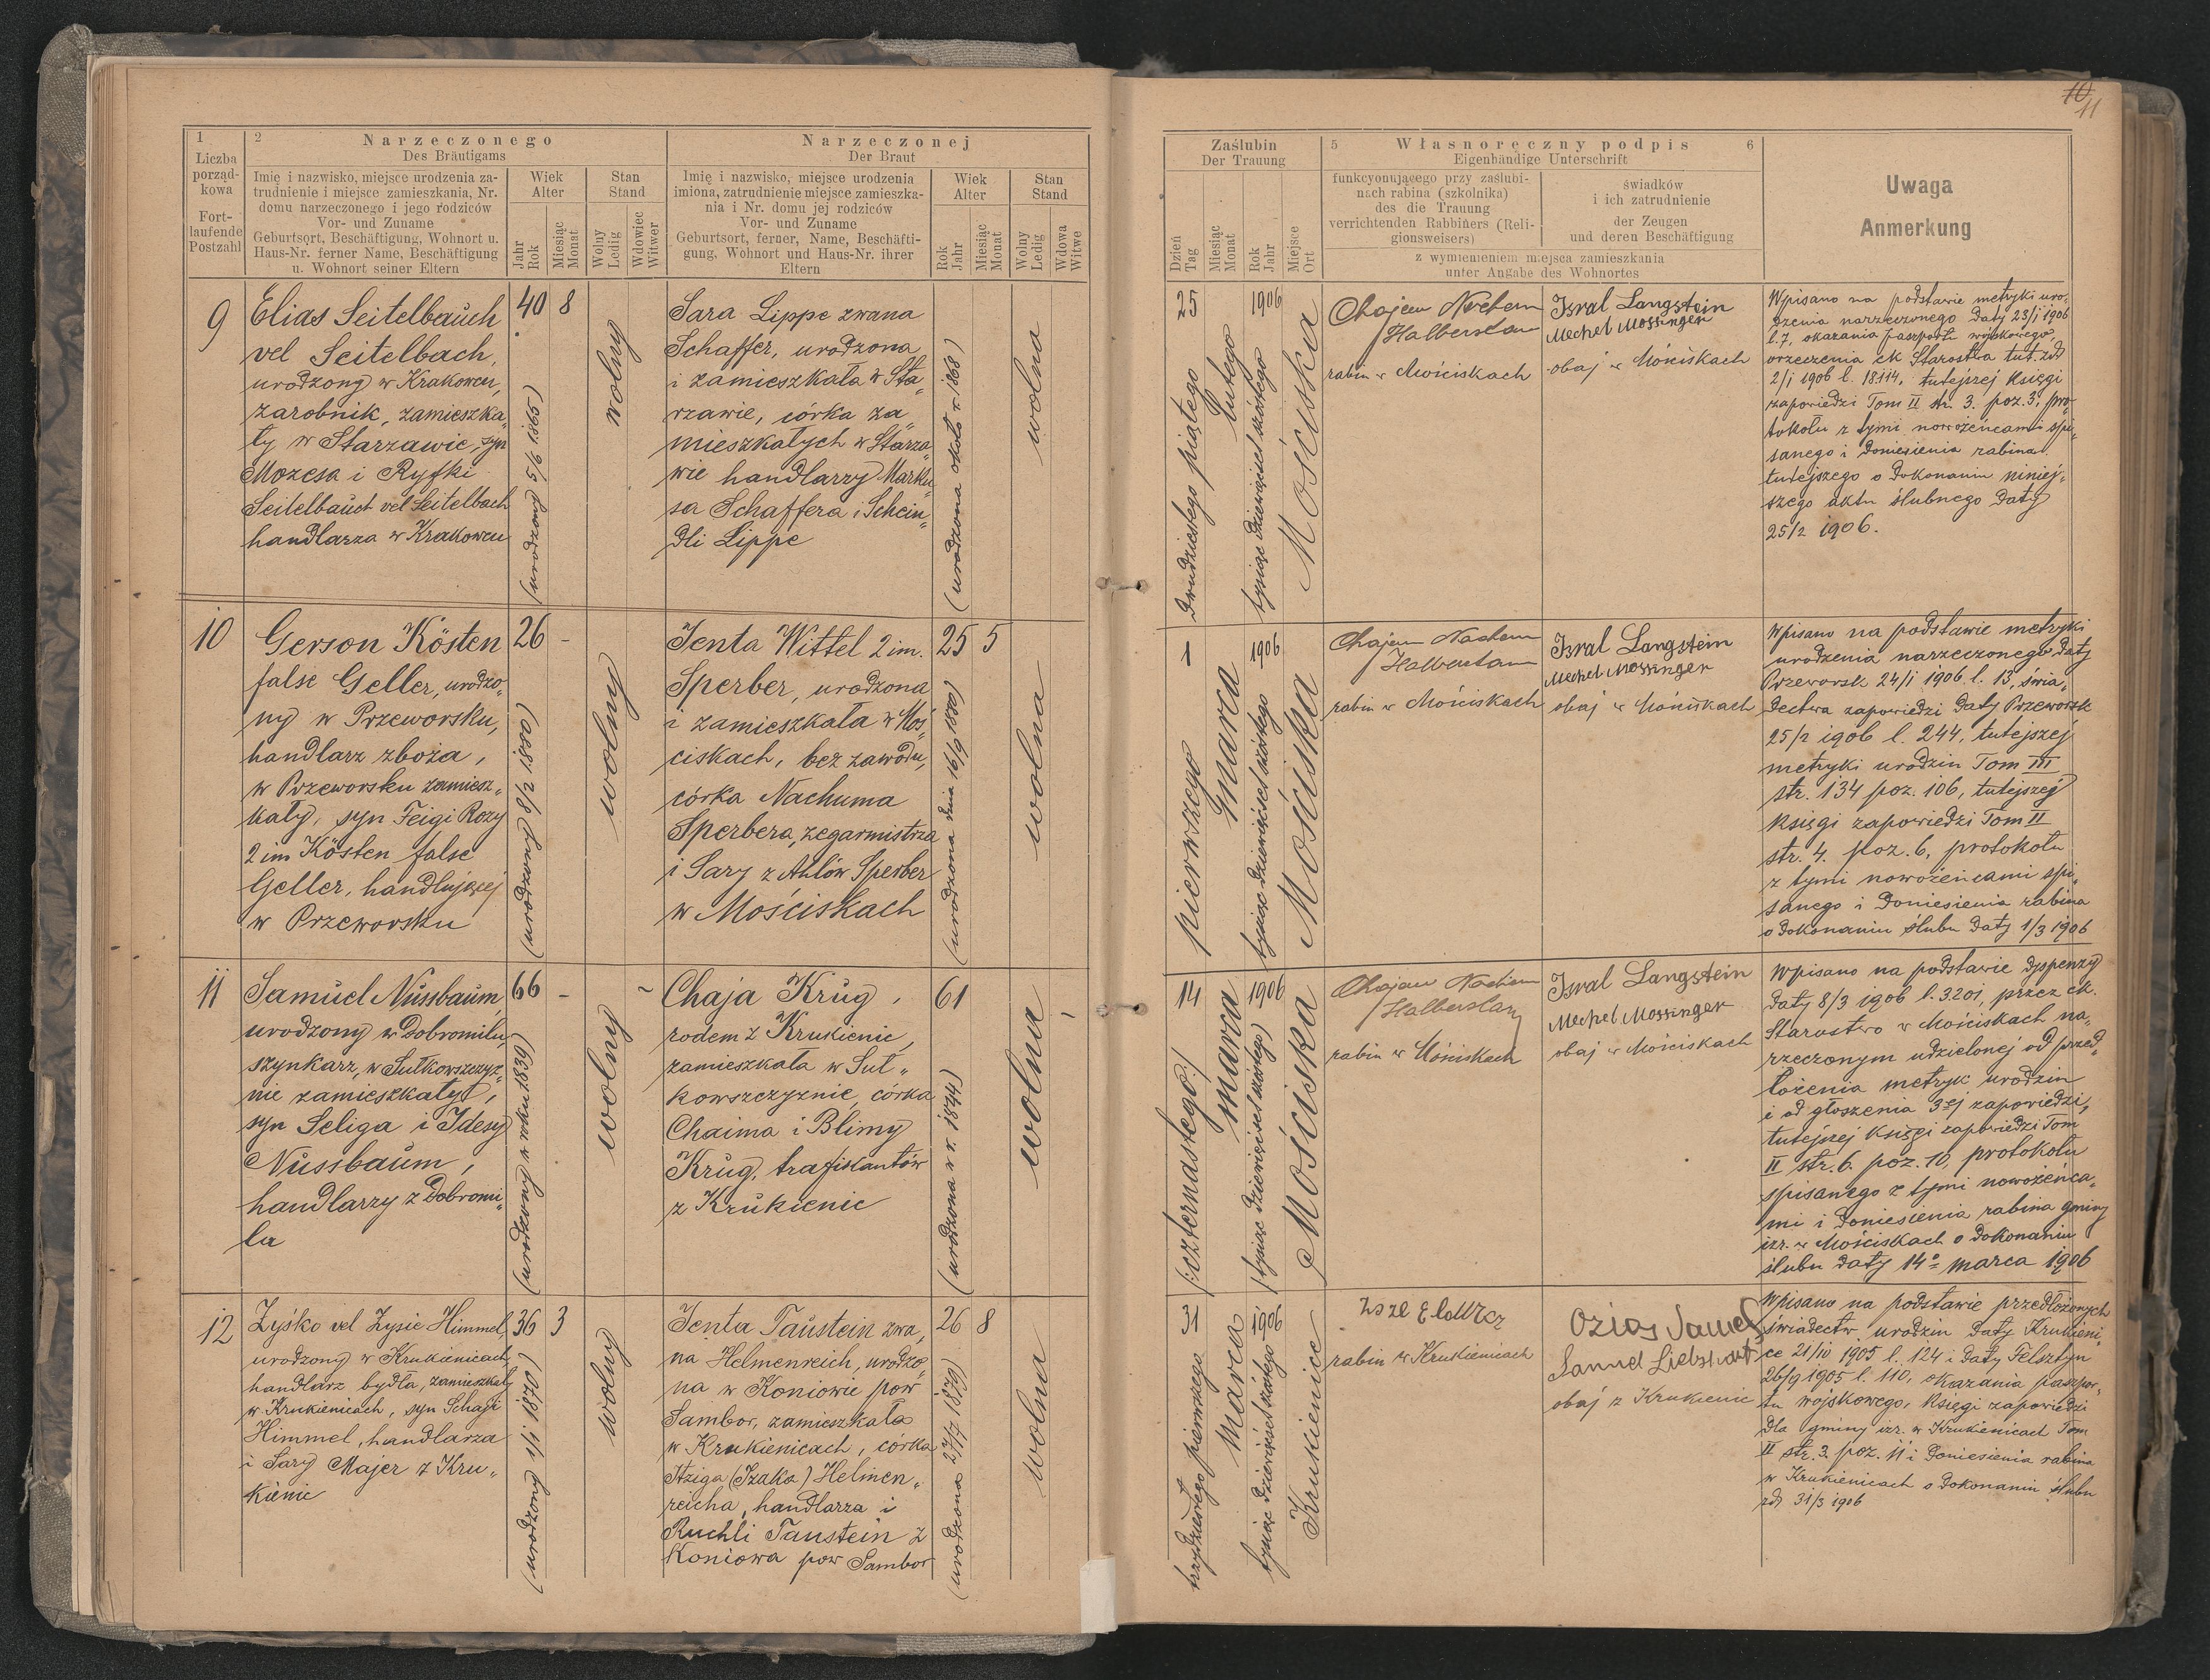 10
11
1
Liczba
porząd-
kowa
Fort-
laufende
Postzahl
2
Narzeczonego
Des Bräutigams
Imię i nazwisko, miejsce urodzenia za-
trudnienie i miejsce zamieszkania, Nr.
domu narzeczonego i jego rodziców
Vor- und Zuname
Geburtsort, Beschäftigung, Wohnort u.
Haus-Nr. ferner Name, Beschäftigung
u. Wohnort seiner Eltern
Wiek
Alter
Jahr
Rok
Miesiąc
Monat
Stan
Stand
Wolny
Ledig
Wdowiec
Witwer
Narzeczonej
Der Braut
Imię i nazwisko, miejsce urodzenia
imiona, zatrudnienie miejsce zamieszka-
nia i Nr. domu jej rodziców
Vor- und Zuname
Geburtsort, ferner, Name, Beschäfti-
gung, Wohnort und Haus-Nr. ihrer
Eltern
Wiek
Alter
Rok
Jahr
Miesiąc
Monat
Stan
Stand
Wolny
Ledig
Wdowa
Witwe
Zaślubin
Der Trauung
Dzień
Tag
Miesiąc
Monat
Rok
Jahr
Miejsce
Ort
5
Własnoręczny podpis
6
Eigenhändige Unterschrift
funkcyonującego przy zaślubi-
nach rabina (szkolnika)
des die Trauung
verrichtenden Rabbiners (Reli-
gionsweisers)
świadków
i ich zatrudnienie
der Zeugen
und deren Beschäftigung
z wymieniem miejsca zamieszkania
unter Angabe des Wohnortes
Uwaga
Anmerkung
9
Elias Seitelbauch
vel Seitelbach,
urodzony w Krakowcu,
zarobnik, zamieszka„
ły w Starzawie, syn
Mozesa i Ryfki
Seitelbauch vel Seitelbach
handlarza w Krakowcu
40 8
(urodzony 5/6 1865)
wolny
Sara Lippe zwana
Schaffer, urodzona
i zamieszkała w Sta„
rzawie, córka za„
mieszkałych w Starza„
wie handlarzy Marku„
sa Schaffera i Schein„
dli Lippe
(urodzona około r. 1868)
wolna
25
dwudziestego piątego
lutego
1906
tysiąc dziewięćset szóstego
Mościska
Chajem Nochem
Halberstam
rabin w Mościskach
Isral Langstein
Mechel Mossinger
obaj w Mościskach
Wpisano na podstawie metryki uro„
dzenia narzeczonego daty 23/1 1906
l. 7, okazania paszportu wojskowego,
orzeczenia ck Starostwa tut. zd
2/1 1906 l. 18114, tutejszej księgi
zapowiedzi Tom II str. 3. poz. 3, pro„
tokołu z tymi nowożeńcami spi„
sanego i doniesienia rabina
tutejszego o dokonaniu niniej„
szego aktu ślubnego daty
25/2 1906.
10
Gerson Kösten
false Geller, urodzo„
ny w Przeworsku,
handlarz zboża,
w Przeworsku zamiesz„
kały, syn Feigi Rozy
2 im Kösten false
Geller, handlującej
w Przeworsku
26 -
(urodzony 8/2 1880)
wolny
Jenta Wittel 2 im.
Sperber, urodzona
i zamieszkała w Moś„
ciskach, bez zawodu,
córka Nachuma
Sperbera, zegarmistrza
i Sary z Ahlów Sperber
w Mościskach
25 5
(urodzona dnia 16/9 1880)
wolna
1
pierwszego
marca
1906
tysiąc dziewięćset szóstego
Mościska
Chajem Nachem
Halberstam
rabin w Mościskach
Isral Langstein
Mechel Mossinger
obaj w Mościskach
Wpisano na podstawie metryki
urodzenia narzeczonego daty
Przeworsk 24/1 1906 l. 13, świa„
dectwa zapowiedzi daty Przeworsk
25/2 1906 l. 244, tutejszej
metryki urodzin Tom III
str. 134 poz. 106, tutejszej
księgi zapowiedzi Tom II
str. 4. poz. 6, protokołu
z tymi nowożeńcami spi„
sanego i doniesienia rabina
o dokonaniu ślubu daty 1/3 1906
11
Samuel Nussbaum,
urodzony w Dobromilu,
szynkarz, w Sułkowszczyz„
nie zamieszkały,
syn Seliga i Idesy
Nussbaum,
handlarzy z Dobromi„
la
66 -
(urodzony w roku 1839)
wolny
Chaja Krug,
rodem z Krukienic,
zamieszkała w Suł„
kowszczyznie, córka
Chaima i Blimy
Krug, trafikantów
z Krukienic
61
(urodzona w r. 1844)
wolna
14
(czternastego)
marca
1906
(tysiąc dziewięćset szóstego)
Mościska
Chajem Nachem
Halberstam
rabin w Mościskach
Isral Langstein
Mechel Mossinger
obaj w Mościskach
Wpisano na podstawie dyspenzy
daty 8/3 1906 l. 3.201, przez ck.
Starostwo w Mościskach na„
rzeczonym udzielonej od przed„
łożenia metryk urodzin
i od głoszenia 3ej zapowiedzi,
tutejszej księgi zapowiedzi Tom
II str. 6. poz. 10, protokołu
spisanego z tymi nowożeńca„
mi i doniesienia rabina gminy
izr. w Mościskach o dokonaniu
ślubu daty 14º marca 1906
12
Zyśko vel Zysie Himmel,
urodzony w Krukienicach,
handlarz bydła, zamieszkały
w Krukienicach, syn Schaji
Himmel, handlarza
i Sary Majer z Kru„
kienic
36 3
(urodzony 1/1 1870)
wolny
Jenta Taustein zwa„
na Helmenreich, urodzo„
na w Koniowie pow
Sambor, zamieszkała
w Krukienicach, córka
Itziga (Izaka) Helmen„
reicha, handlarza i
Ruchli Taustein z
Koniowa pow Sambor
26 8
(urodzona 27/7 1879)
wolna
31
trzydziestego pierwszego
marca
1906
tysiąc dziewięćset szóstego
Krukienice
rabin w Krukienicach
Ozias
Samel
obaj z Krukienic
Wpisano na podstawie przedłożonych
świadectw urodzin daty Krukieni„
ce 21/10 1905 l. 124 i daty Felsztyn
26/9 1905 l. 110, okazania paszpor„
tu wojskowego, księgi zapowiedzi
dla gminy izr. w Krukienicach Tom
II str. 3. poz. 11 i doniesienia rabina
w Krukienicach o dokonaniu ślubu
zd 31/3 1906